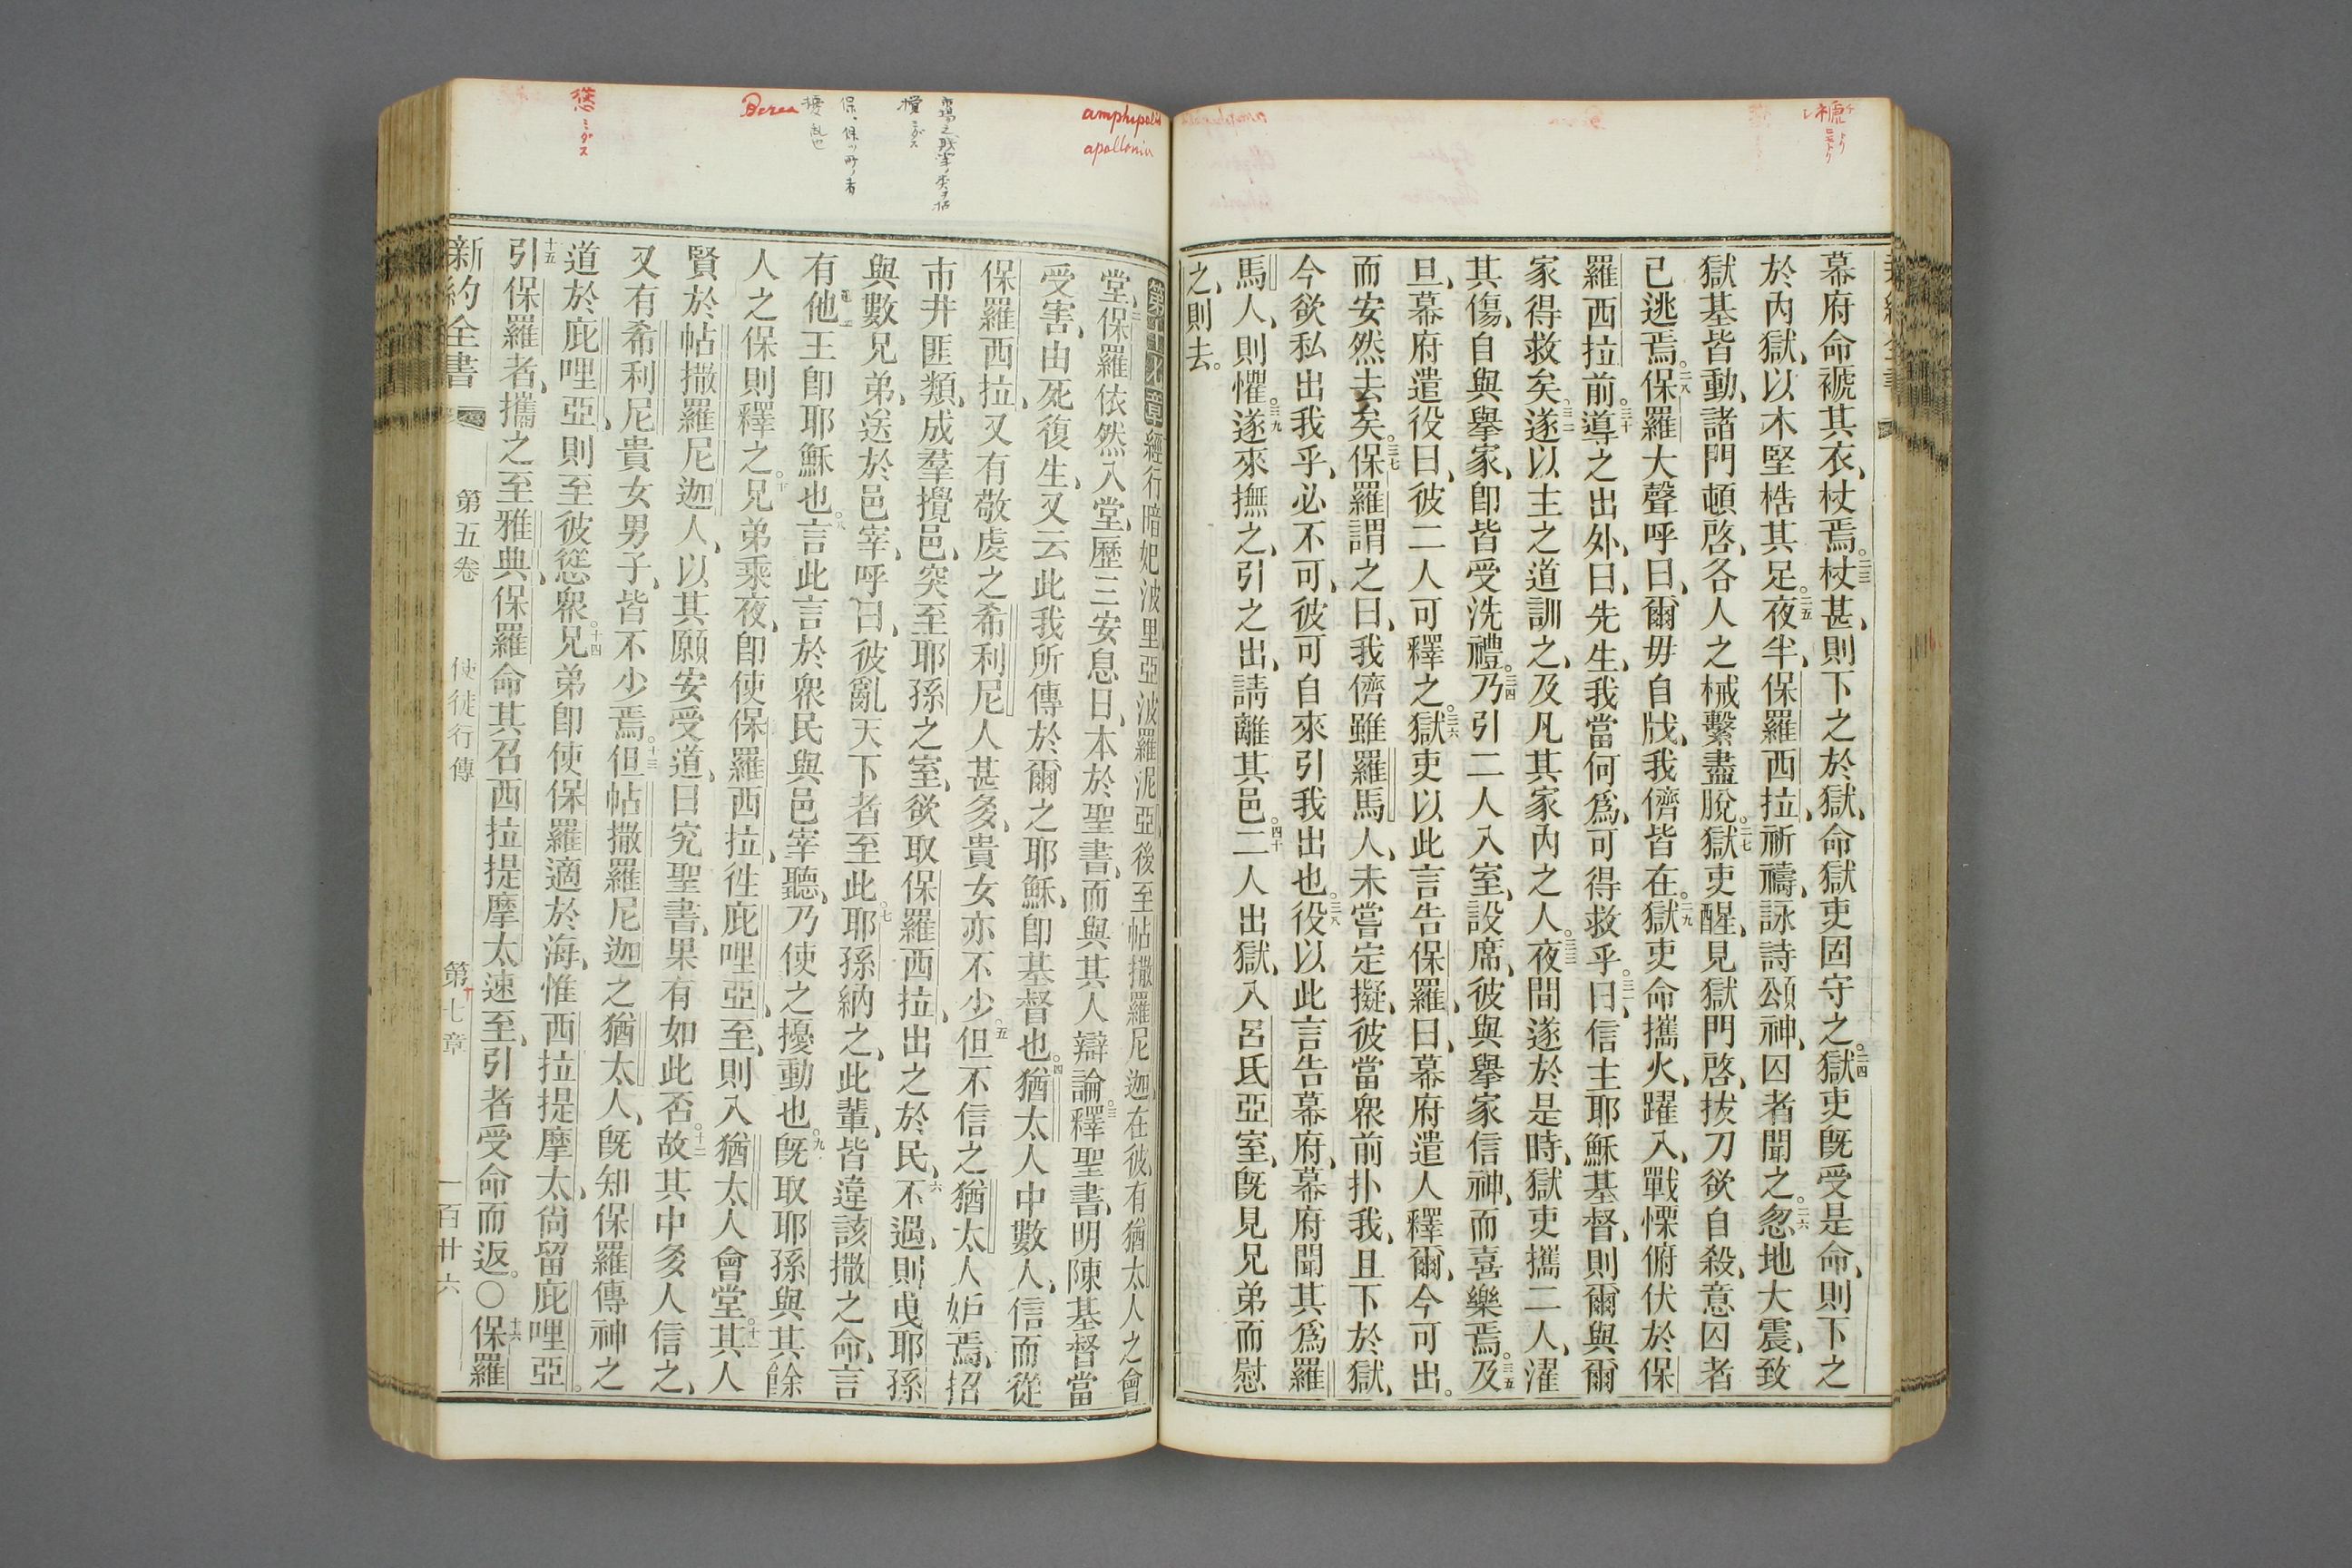 褫
幕府命褫其衣、杖焉。二三杖甚、則下之於獄、命獄吏固守之。二四獄吏旣受是命、則下之
於內獄、以木堅梏其足。二五夜半、保羅西拉、祈禱、詠詩頌神、囚者聞之。二六忽地大震、致
獄基皆動、諸門頓啓、各人之械繫盡脫。二七獄吏醒、見獄門啓、拔刀欲自殺、意囚者
已逃焉。二八保羅大聲呼曰、爾毋自戕、我儕皆在。二九獄吏命攜火、躍入、戰慄俯伏於保
羅西拉前。三十導之出外、曰、先生、我當何爲、可得救乎。三一曰、信主耶穌基督、則爾與爾
家得救矣。三二遂以主之道訓之、及凡其家內之人。三三夜間遂於是時、獄吏攜二人、濯
其傷、自與舉家、卽皆受洗禮。三四乃引二人入室、設席、彼與舉家信神、而喜樂焉。三五及
旦、幕府遣役曰、彼二人可釋之。三六獄吏以此言告保羅、曰、幕府遣人釋爾、今可出。
而安然去矣。三七保羅謂之曰、我儕雖羅馬人、未嘗定擬、彼當衆前扑我、且下於獄、
今欲私出我乎、必不可、彼可自來引我出也。三八役以此言告幕府、幕府聞其爲羅
馬人、則懼。三九遂來撫之、引之出、請離其邑。四十二人出獄、入呂氐亞室、旣見兄弟而慰
之、則去。
amphipolis
apollonia
攪 ミダス
保、保ノ所ノ者
擾亂也
Berea
慫 ミダス
第十七章 經行暗妃波里亞波羅泥亞、後至帖撒羅尼迦、在彼有猶太人之會
堂、二保羅依然入堂、歷三安息日、本於聖書、而與其人辯論。三釋聖書、明陳基督當
受害、由死復生、又云此我所傳於爾之耶穌、卽基督也。四猶太人中數人、信而從
保羅西拉、又有敬虔之希利尼人甚多、貴女亦不少。五但不信之猶太人妒焉、招
市井匪類、成羣攪邑、突至耶孫之室、欲取保羅西拉、出之於民、六不遇、則曳耶孫
與數兄弟、送於邑宰、呼曰、彼亂天下者至此。七耶孫納之、此輩、皆違該撒之命、言
有他王卽耶穌也。八言此言於衆民與邑宰聽、乃使之擾動也。九旣取耶孫與其餘
人之保則釋之。十兄弟乘夜、卽使保羅西拉、徃庇哩亞、至、則入猶太人會堂。十一其人
賢於帖撒羅尼迦人、以其願安受道、日究聖書、果有如此否。十二故其中多人信之、
又有希利尼貴女男子、皆不少焉。十三但帖撒羅尼迦之猶太人、旣知保羅傳神之
道於庇哩亞、則至彼慫衆。十四兄弟卽使保羅適於海、惟西拉提摩太、尙留庇哩亞。
十五引保羅者、攜之至雅典、保羅命其召西拉提摩太速至、引者受命而返。〇十六保羅
新約全書 第五卷 使徒行傳 第七章 一百廿六